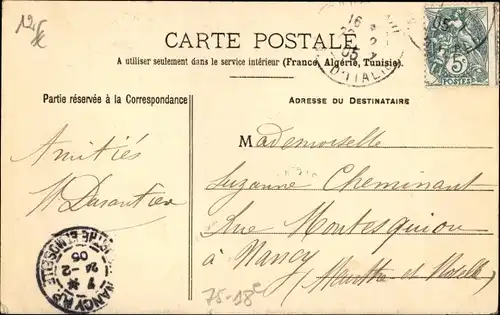 12.5c
CARTE POSTALE
A utiliser seulement dans le service intérieur (France, Algérie, Tunisie).
16
05
D'ITALIE
05
5c
POSTES
Partie réservée à la Correspondance
ADRESSE DU DESTINATAIRE
Amitiés
Mademoiselle
Suzanne Cheminant
Rue Montesquiou
à Nancy
(Meurthe et Moselle)
MEURTHE ET MOSELLE
24-2
05
NANCY
75-18e